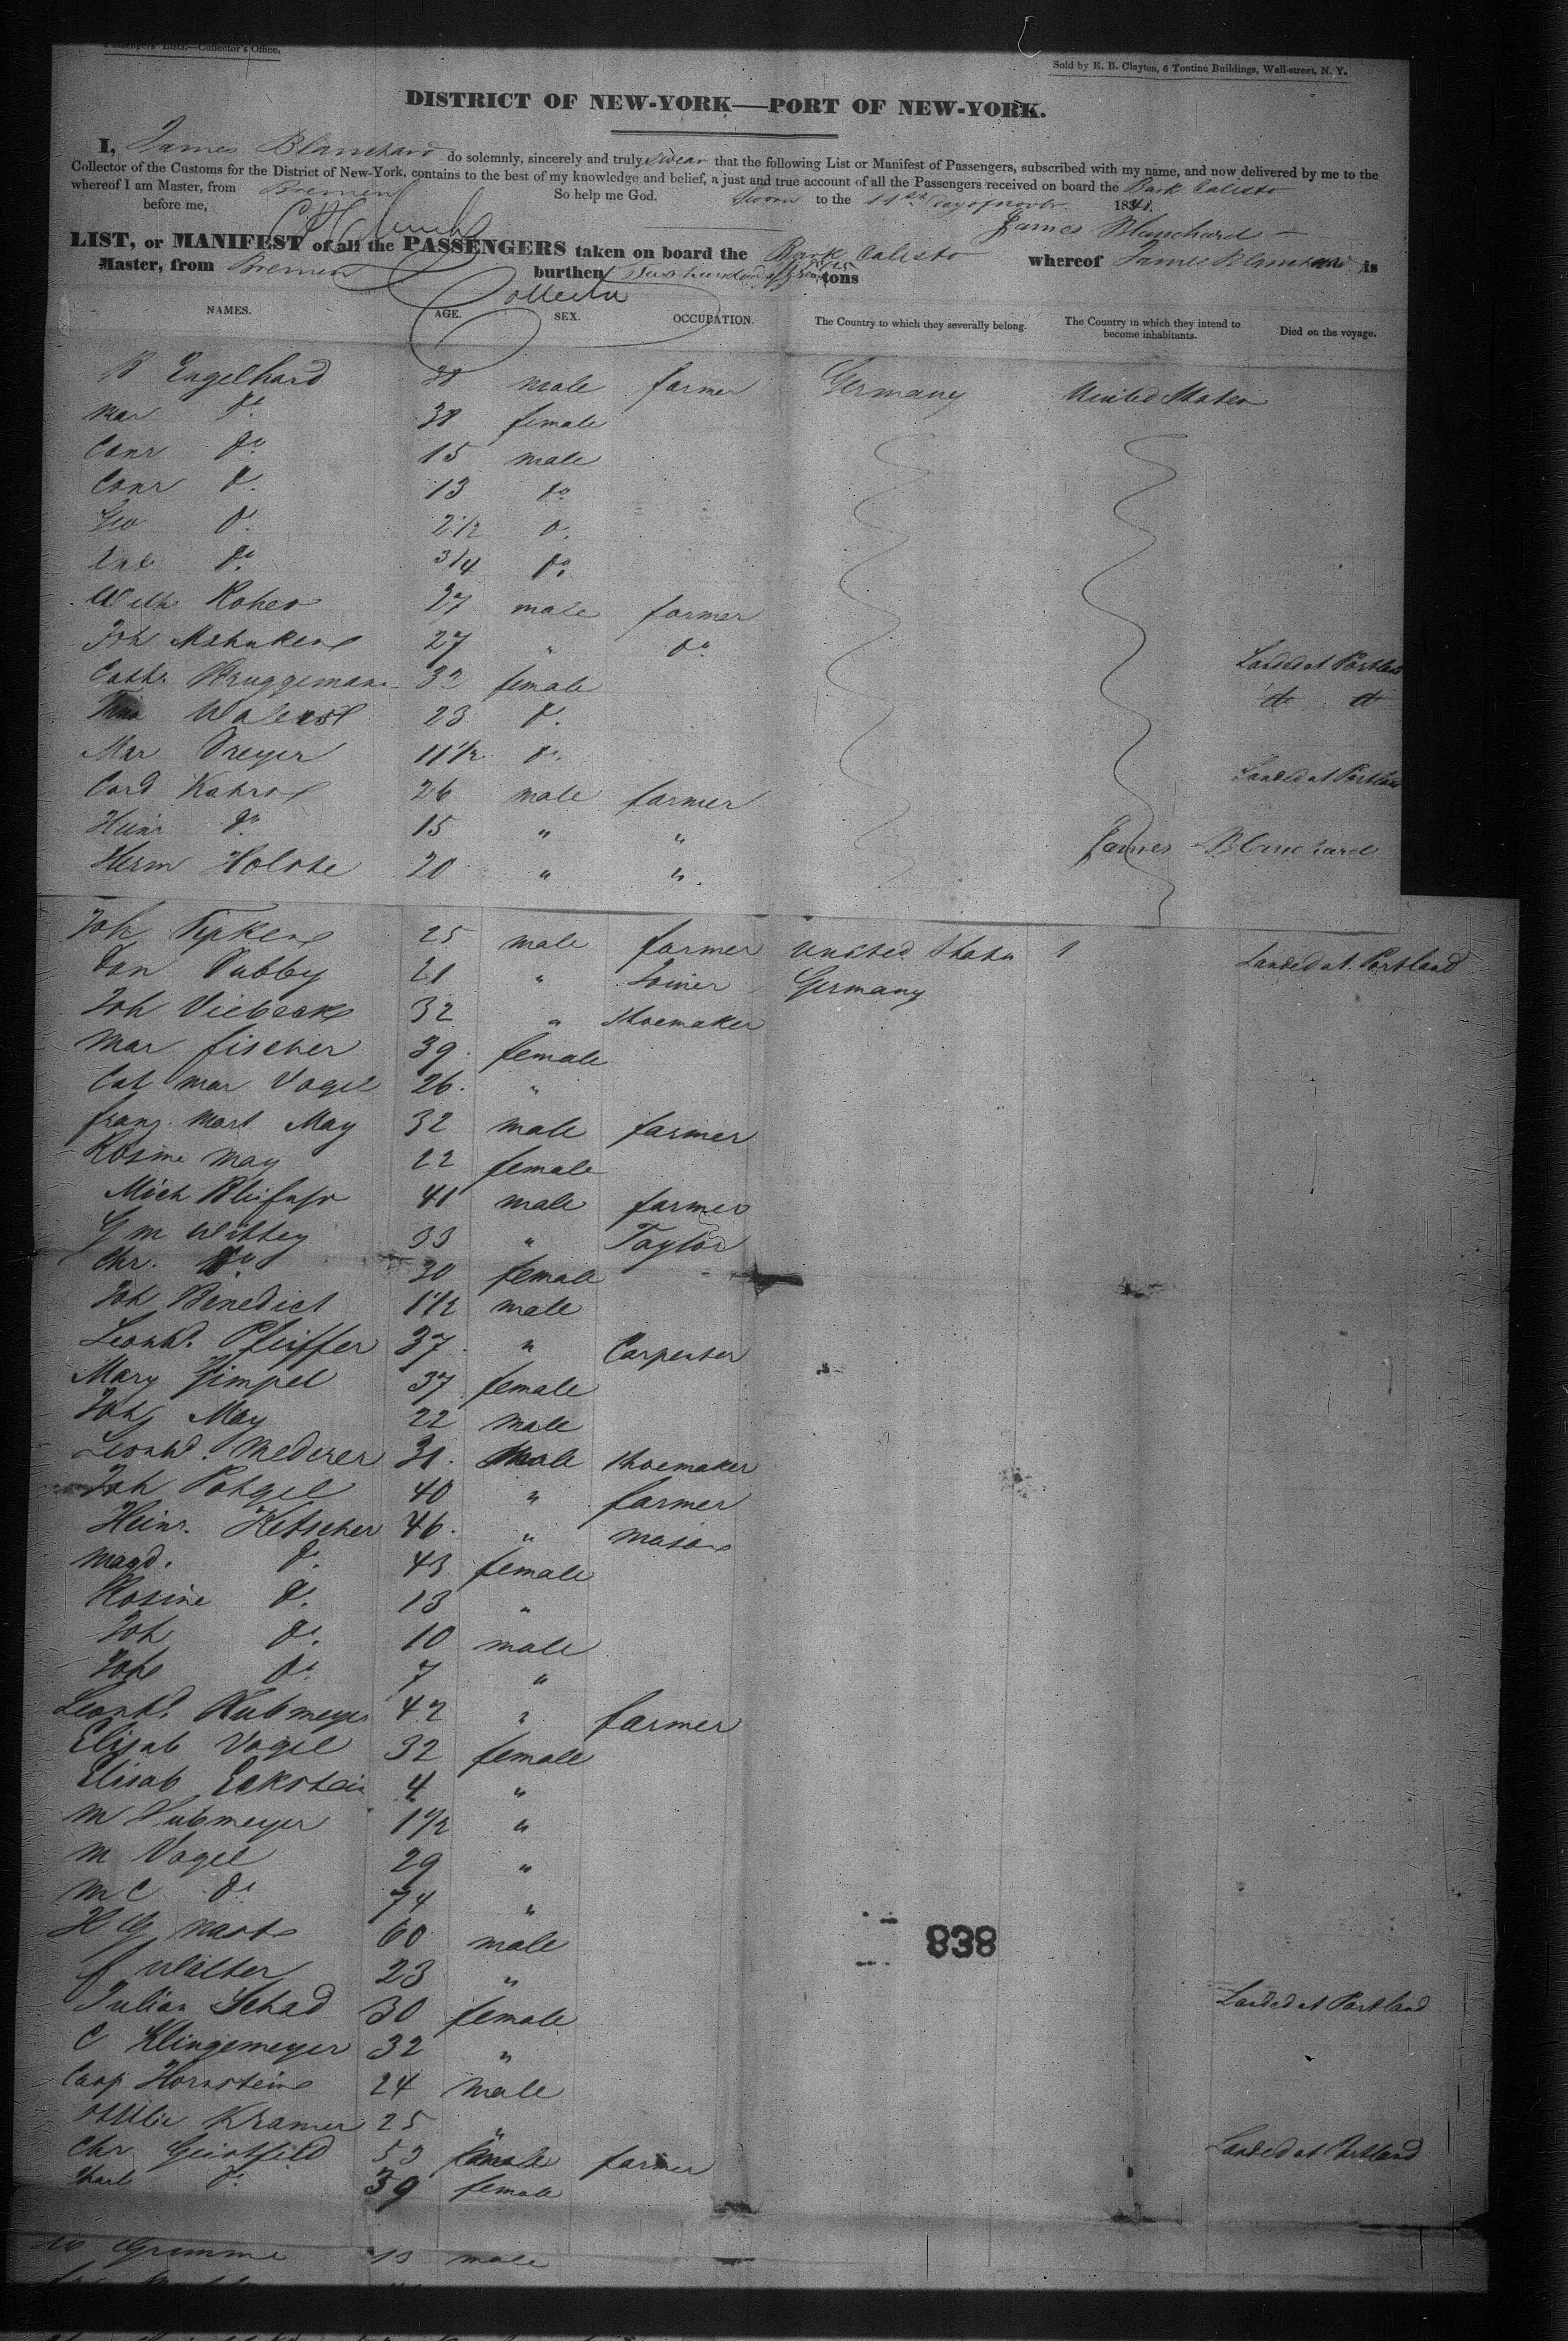 Passengers' Lists.—Collector's Office.
Sold by E. B. Clayton, 6 Tontine Buildings, Wall-street, N. Y.
DISTRICT OF NEW-YORK—PORT OF NEW-YORK.
I, James Blanchard do solemnly, sincerely and truly swear that the following List or Manifest of Passengers, subscribed with my name, and now delivered by me to the
Collector of the Customs for the District of New-York, contains to the best of my knowledge and belief, a just and true account of all the Passengers received on board the Bark Calisto
whereof I am Master, from Bremen So help me God. Sworn to the 11th day of Novbr. 1841.
before me, James Blanchard
LIST, or MANIFEST of all the PASSENGERS taken on board the Bark Calisto whereof James Blanchard is
Master, from Bremen burthen tons
Collector
NAMES. AGE. SEX. OCCUPATION. The Country to which they severally belong. The Country in which they intend to become inhabitants. Died on the voyage.
Engelhard 38 male farmer Germany United States
Mar do 38 female
Conr do 15 male
Conr do 13 do
Geo do 2 1/2 do
do 3/4 do
Wilh 27 male farmer
Joh 27 " do Landed at Portland
Cath Bruggemann 32 female do do
23 do
Mar Dreyer 11 1/2 do Landed at Portland
Cord Kahrs 26 male farmer
Heinr do 15 " " James Blanchard
Herm Holste 20 " "
Joh Tipken 25 male farmer United States 1 Landed at Portland
Dubby 21 " Joiner Germany
Joh 32 " Shoemaker
Mar Fischer 39 female
Cat Mar Vogel 26 "
Franz Mart May 32 male farmer
Rosine May 22 female
Mich 41 male farmer
G M 33 " Taylor
Chr. do 30 female
Joh Benedict 1 1/2 male
Leonhd. Pfeiffer 37 " Carpenter
Mary Gimpel 37 female
Joh May 22 male
Leonhd. Mederer 31 male Shoemaker
Joh 40 " farmer
Heinr. Hetscher 46 " mason
Magd. do 43 female
Rosine do 13 "
Joh do 10 male
Joh do 7 "
Leonhd. Hubmeyer 42 " farmer
Elisab Vogel 32 female
Elisab Eckstein 4 "
M Hubmeyer 1 1/2 "
M Vogel 29 "
M C do 74 "
H G 60 male
F Walther 23 "
Julian Schad 30 female Landed at Portland
C Klingemeyer 32 "
Casp Hornstein 24 male
Ottilie Kramer 25 "
Chr Geistfeld 53 male farmer Landed at Portland
do 39 female
838
Grimme male